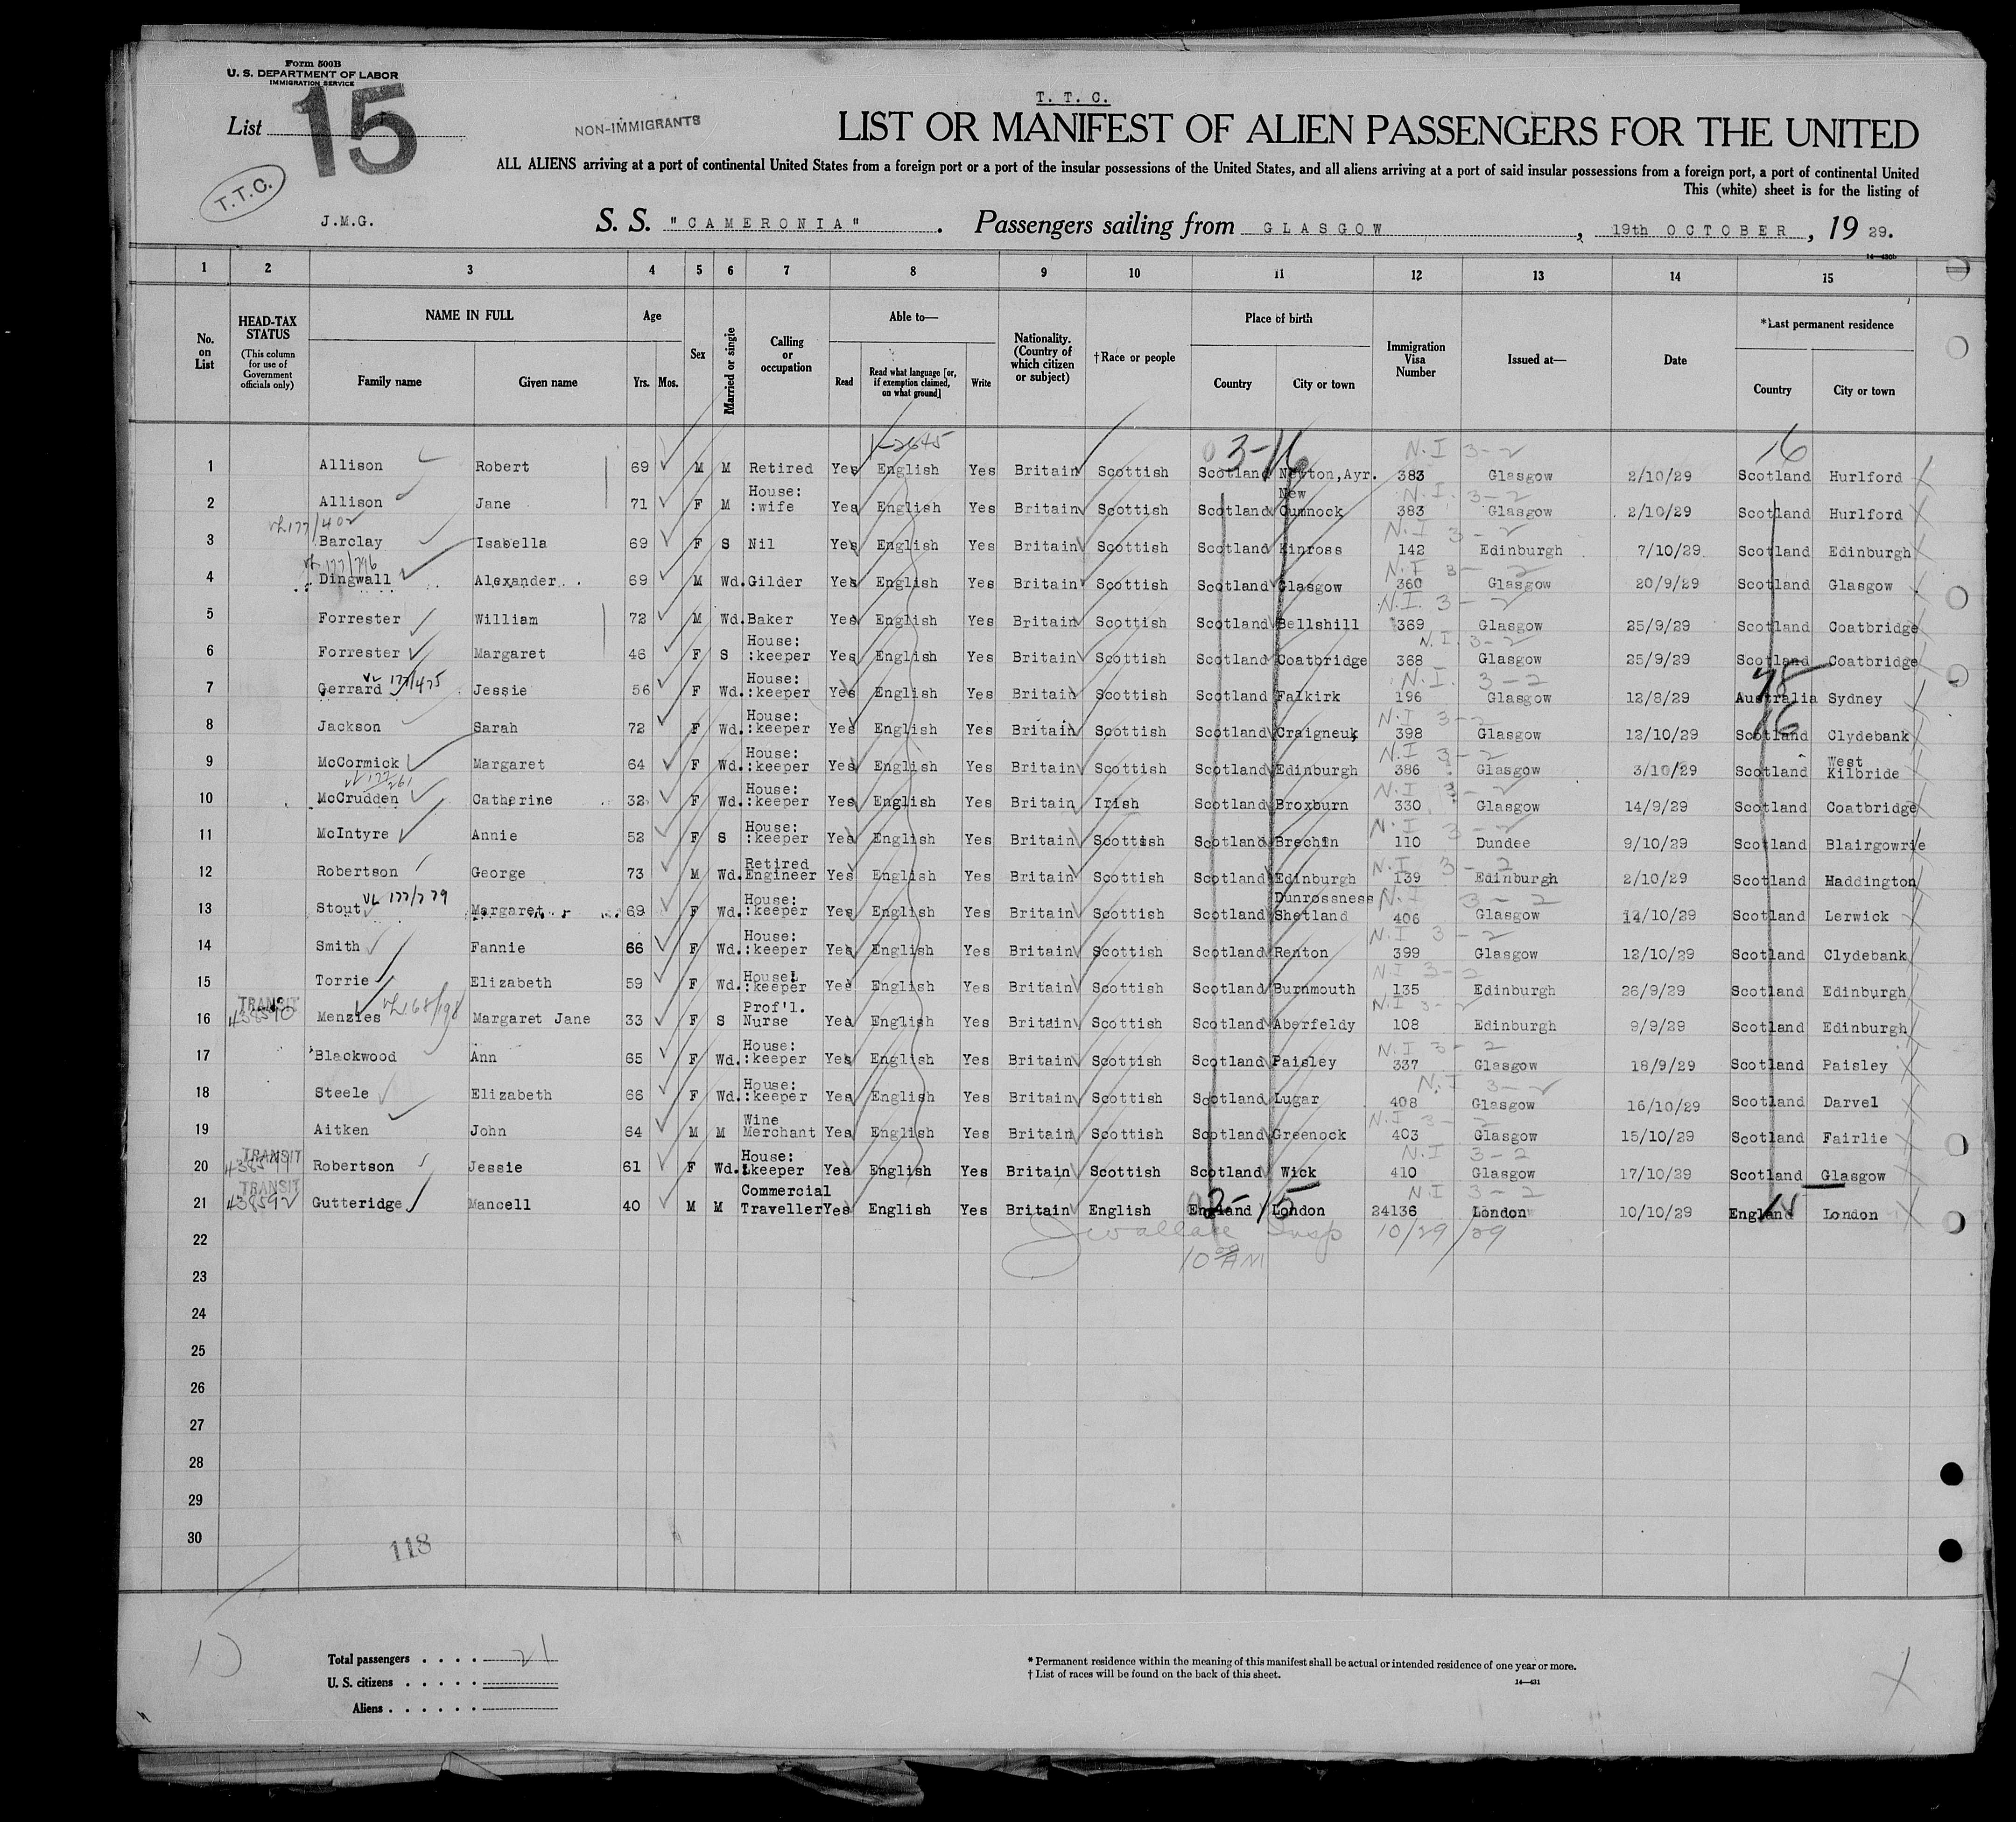 Form 500B
U. S. DEPARTMENT OF LABOR
IMMIGRATION SERVICE
List 15
NON-IMMIGRANTS
T. T. C.
LIST OR MANIFEST OF ALIEN PASSENGERS FOR THE UNITED
ALL ALIENS arriving at a port of continental United States from a foreign port or a port of the insular possessions of the United States, and all aliens arriving at a port of said insular possessions from a foreign port, a port of continental United
This (white) sheet is for the listing of
T.T.C.
J.M.G.
S. S. "CAMERONIA". Passengers sailing from GLASGOW, 19th OCTOBER, 19 29.
14—430b
1 2 3 4 5 6 7 8 9 10 11 12 13 14 15
No. on List
HEAD-TAX STATUS (This column for use of Government officials only)
NAME IN FULL
Family name Given name
Age
Yrs. Mos.
Sex
Married or single
Calling or occupation
Able to—
Read
Read what language [or, if exemption claimed, on what ground]
Write
Nationality. (Country of which citizen or subject)
†Race or people
Place of birth
Country City or town
Immigration Visa Number
Issued at—
Date
*Last permanent residence
Country City or town
3-16 N.I 3-2 16
1 Allison Robert 69 M M Retired Yes English Yes Britain Scottish Scotland Newton,Ayr. 383 Glasgow 2/10/29 Scotland Hurlford
N.I. 3-2
2 Allison Jane 71 F M House: :wife Yes English Yes Britain Scottish Scotland New Cumnock 383 Glasgow 2/10/29 Scotland Hurlford
N.I 3-2
3 Barclay Isabella 69 F S Nil Yes English Yes Britain Scottish Scotland Kinross 142 Edinburgh 7/10/29 Scotland Edinburgh
N.I 3-2
4 Dingwall Alexander 69 M Wd. Gilder Yes English Yes Britain Scottish Scotland Glasgow 360 Glasgow 20/9/29 Scotland Glasgow
N.I. 3-2
5 Forrester William 72 M Wd. Baker Yes English Yes Britain Scottish Scotland Bellshill 369 Glasgow 25/9/29 Scotland Coatbridge
N.I. 3-2
6 Forrester Margaret 46 F S House: :keeper Yes English Yes Britain Scottish Scotland Coatbridge 368 Glasgow 25/9/29 Scotland Coatbridge
N.I. 3-2
7 Gerrard Jessie 56 F Wd. House: :keeper Yes English Yes Britain Scottish Scotland Falkirk 196 Glasgow 12/8/29 Australia Sydney
N.I 3-2 16
8 Jackson Sarah 72 F Wd. House: :keeper Yes English Yes Britain Scottish Scotland Craigneuk 398 Glasgow 12/10/29 Scotland Clydebank
N.I 3-2
9 McCormick Margaret 64 F Wd. House: :keeper Yes English Yes Britain Scottish Scotland Edinburgh 386 Glasgow 3/10/29 Scotland West Kilbride
N.I 3-2
10 McCrudden Catherine 32 F Wd. House: :keeper Yes English Yes Britain Irish Scotland Broxburn 330 Glasgow 14/9/29 Scotland Coatbridge
N.I 3-2
11 McIntyre Annie 52 F S House: :keeper Yes English Yes Britain Scottish Scotland Brechin 110 Dundee 9/10/29 Scotland Blairgowrie
N.I 3-2
12 Robertson George 73 M Wd. Retired Engineer Yes English Yes Britain Scottish Scotland Edinburgh 139 Edinburgh 2/10/29 Scotland Haddington
N.I 3-2
13 Stout Margaret 69 F Wd. House: :keeper Yes English Yes Britain Scottish Scotland Dunrossness Shetland 406 Glasgow /10/29 Scotland Lerwick
N.I 3-2
14 Smith Fannie 66 F Wd. House: :keeper Yes English Yes Britain Scottish Scotland Renton 399 Glasgow 12/10/29 Scotland Clydebank
N.I 3-2
15 Torrie Elizabeth 59 F Wd. House: :keeper Yes English Yes Britain Scottish Scotland Burnmouth 135 Edinburgh 26/9/29 Scotland Edinburgh
TRANSIT N.I 3-2
16 438590 Menzies Margaret Jane 33 F S Prof'l. Nurse Yes English Yes Britain Scottish Scotland Aberfeldy 108 Edinburgh 9/9/29 Scotland Edinburgh
N.I 3-2
17 Blackwood Ann 65 F Wd. House: :keeper Yes English Yes Britain Scottish Scotland Paisley 337 Glasgow 18/9/29 Scotland Paisley
N.I 3-2
18 Steele Elizabeth 66 F Wd. House: :keeper Yes English Yes Britain Scottish Scotland Lugar 408 Glasgow 16/10/29 Scotland Darvel
N.I 3-2
19 Aitken John 64 M M Wine Merchant Yes English Yes Britain Scottish Scotland Greenock 403 Glasgow 15/10/29 Scotland Fairlie
TRANSIT N.I 3-2
20 438591 Robertson Jessie 61 F Wd. House: :keeper Yes English Yes Britain Scottish Scotland Wick 410 Glasgow 17/10/29 Scotland Glasgow
TRANSIT 2-15 N.I 3-2
21 438592 Gutteridge Mancell 40 M M Commercial Traveller Yes English Yes Britain English England London 24136 London 10/10/29 England London
22 J Wallace Insp 10/29/29
10 AM
23
24
25
26
27
28
29
30
118
Total passengers . . . . 21
U. S. citizens . . . . .
Aliens . . . . . .
* Permanent residence within the meaning of this manifest shall be actual or intended residence of one year or more.
† List of races will be found on the back of this sheet.
14—431